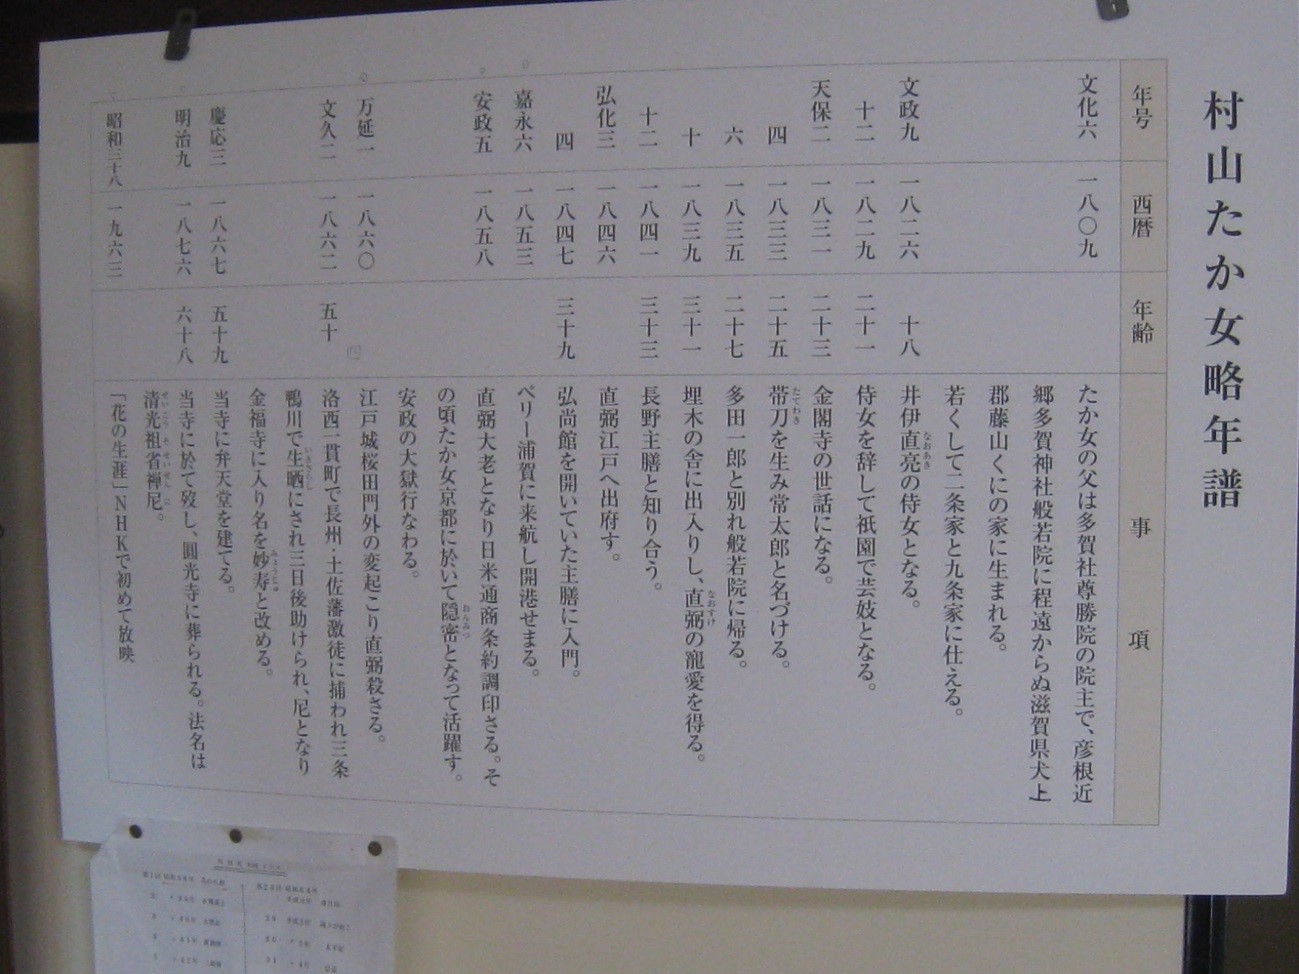 村山たか女略年譜
年号 西暦 年齢 事項
文化六 一八〇九 たか女の父は多賀社尊勝院の院主で、彦根近
郷多賀神社般若院に程遠からぬ滋賀県犬上
郡藤山くにの家に生まれる。
若くして二条家と九条家に仕える。
文政九 一八二六 十八 井伊直亮の侍女となる。
なおあき
十二 一八二九 二十一 侍女を辞して祇園で芸妓となる。
天保二 一八三一 二十三 金閣寺の世話になる。
四 一八三三 二十五 帯刀を生み常太郎と名づける。
たてわき
六 一八三五 二十七 多田一郎と別れ般若院に帰る。
十 一八三九 三十一 埋木の舎に出入りし、直弼の寵愛を得る。
なおすけ
十二 一八四一 三十三 長野主膳と知り合う。
弘化三 一八四六 直弼江戸へ出府す。
四 一八四七 三十九 弘尚館を開いていた主膳に入門。
嘉永六 一八五三 ペリー浦賀に来航し開港せまる。
安政五 一八五八 直弼大老となり日米通商条約調印さる。そ
の頃たか女京都に於いて隠密となって活躍す。
おんみつ
安政の大獄行なわる。
万延一 一八六〇 江戸城桜田門外の変起こり直弼殺さる。
文久二 一八六二 五十四 洛西一貫町で長州・土佐藩激徒に捕われ三条
鴨川で生晒にされ三日後助けられ、尼となり
いきさらし
金福寺に入り名を妙寿と改める。
みょうじゅ
慶応三 一八六七 五十九 当寺に弁天堂を建てる。
明治九 一八七六 六十八 当寺に於て歿し、圓光寺に葬られる。法名は
清光祖省禅尼。
せいこうそせいぜんに
昭和三十八 一九六三 「花の生涯」NHKで初めて放映